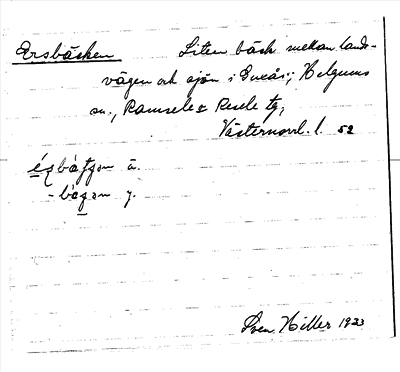 Ersbäcken Liten bäck mellan lands-
vägen och sjön i Ovkås; Helgums
sn., Ramsele o Resele tg,
Västernorrl. l. 52
ä.
y.
Sven Hiller 1923